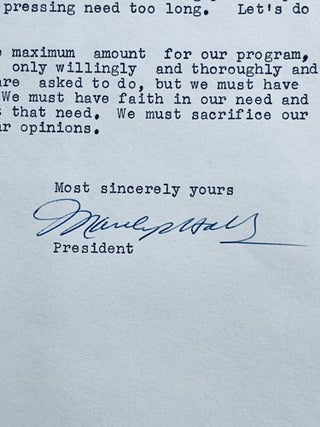 pressing need too long. Let's do
e maximum amount for our program,
only willingly and thoroughly and
are asked to do, but we must have
We must have faith in our need and
s that need. We must sacrifice our
ur opinions.
Most sincerely yours
Manly P Hall
President